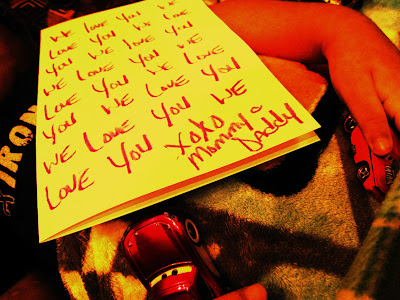 WE LOVE YOU WE
LOVE YOU WE LOVE
YOU WE LOVE YOU
WE LOVE YOU WE
LOVE YOU WE LOVE
YOU WE LOVE YOU
WE LOVE YOU WE
LOVE YOU XOXO
Mommy &
Daddy
IRON